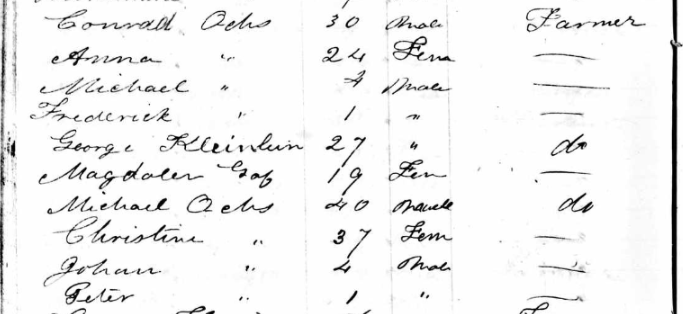 Conrad Ochs 30 Male Farmer
Anna " 24 Fem —
Michael " 4 Male —
Frederick " 1 " —
George Kleinlein 27 " do
Magdalen 19 Fem —
Michael Ochs 40 Male do
Christine " 37 Fem —
Johan " 4 Male —
Peter " 1 " —